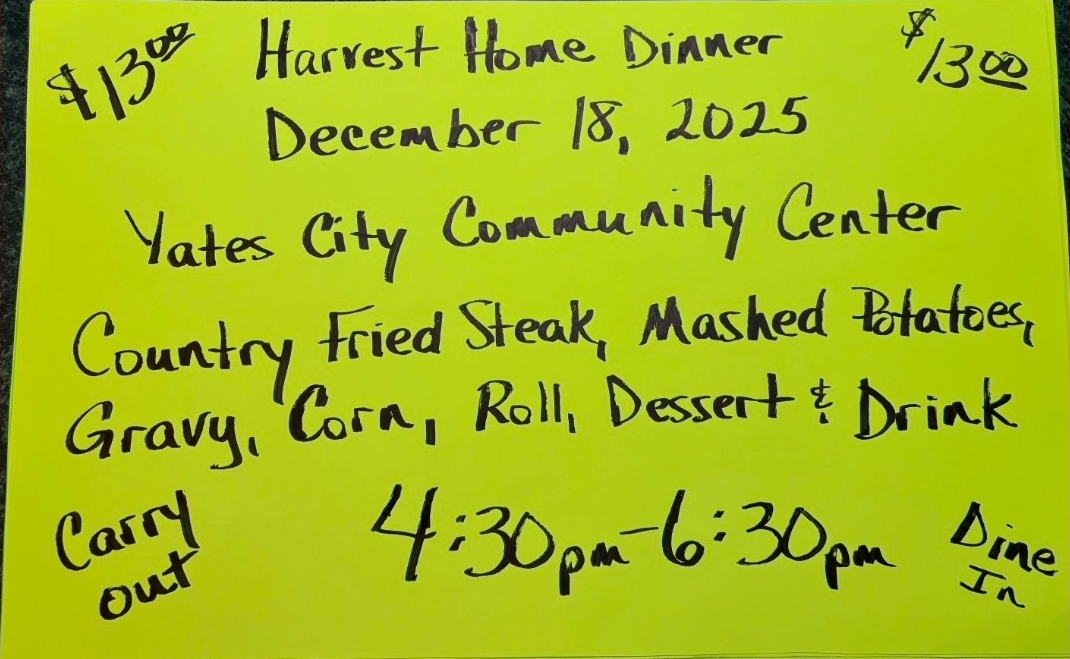 $13.00 Harvest Home Dinner $13.00
December 18, 2025
Yates City Community Center
Country Fried Steak, Mashed Potatoes,
Gravy, Corn, Roll, Dessert & Drink
Carry out
4:30pm-6:30pm
Dine In